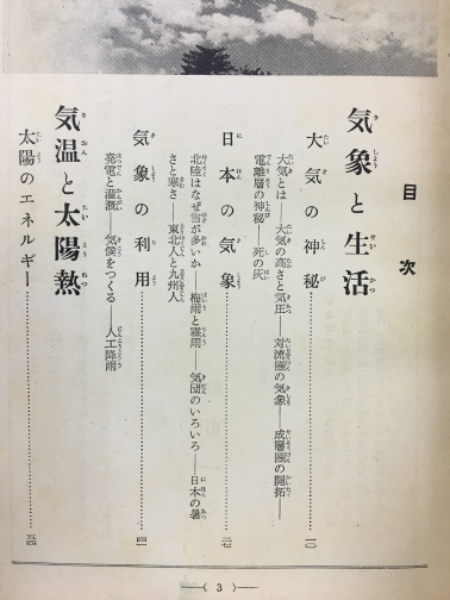 目次
気象と生活
大気の神秘……一〇
大気とは――大気の高さと気圧――対流圏の気象――成層圏の開拓――
電離層の神秘――死の灰
日本の気象……二七
北陸はなぜ雪が多いか――梅雨と霖雨――気団のいろいろ――日本の暑
さと寒さ――東北人と九州人
気象の利用……四一
発電と灌漑――気候をつくる――人工降雨
気温と太陽熱
太陽のエネルギー……五四
3